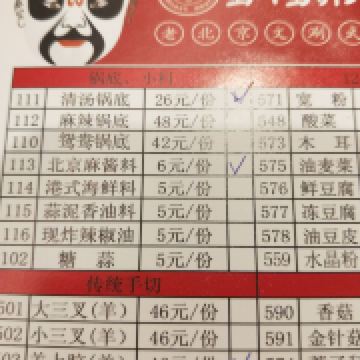 老北京文涮
锅底、小料
111 清汤锅底 26元/份 571 宽粉
112 麻辣锅底 48元/份 548 酸菜
110 鸳鸯锅底 42元/份 573 木耳
113 北京麻酱料 6元/份 575 油麦菜
114 港式海鲜料 5元/份 576 鲜豆腐
115 蒜泥香油料 5元/份 577 冻豆腐
116 现炸辣椒油 5元/份 578 油豆皮
102 糖蒜 5元/份 559 水晶粉
传统手切
501 大三叉(羊) 46元/份 590 香菇
502 小三叉(羊) 46元/份 591 金针菇